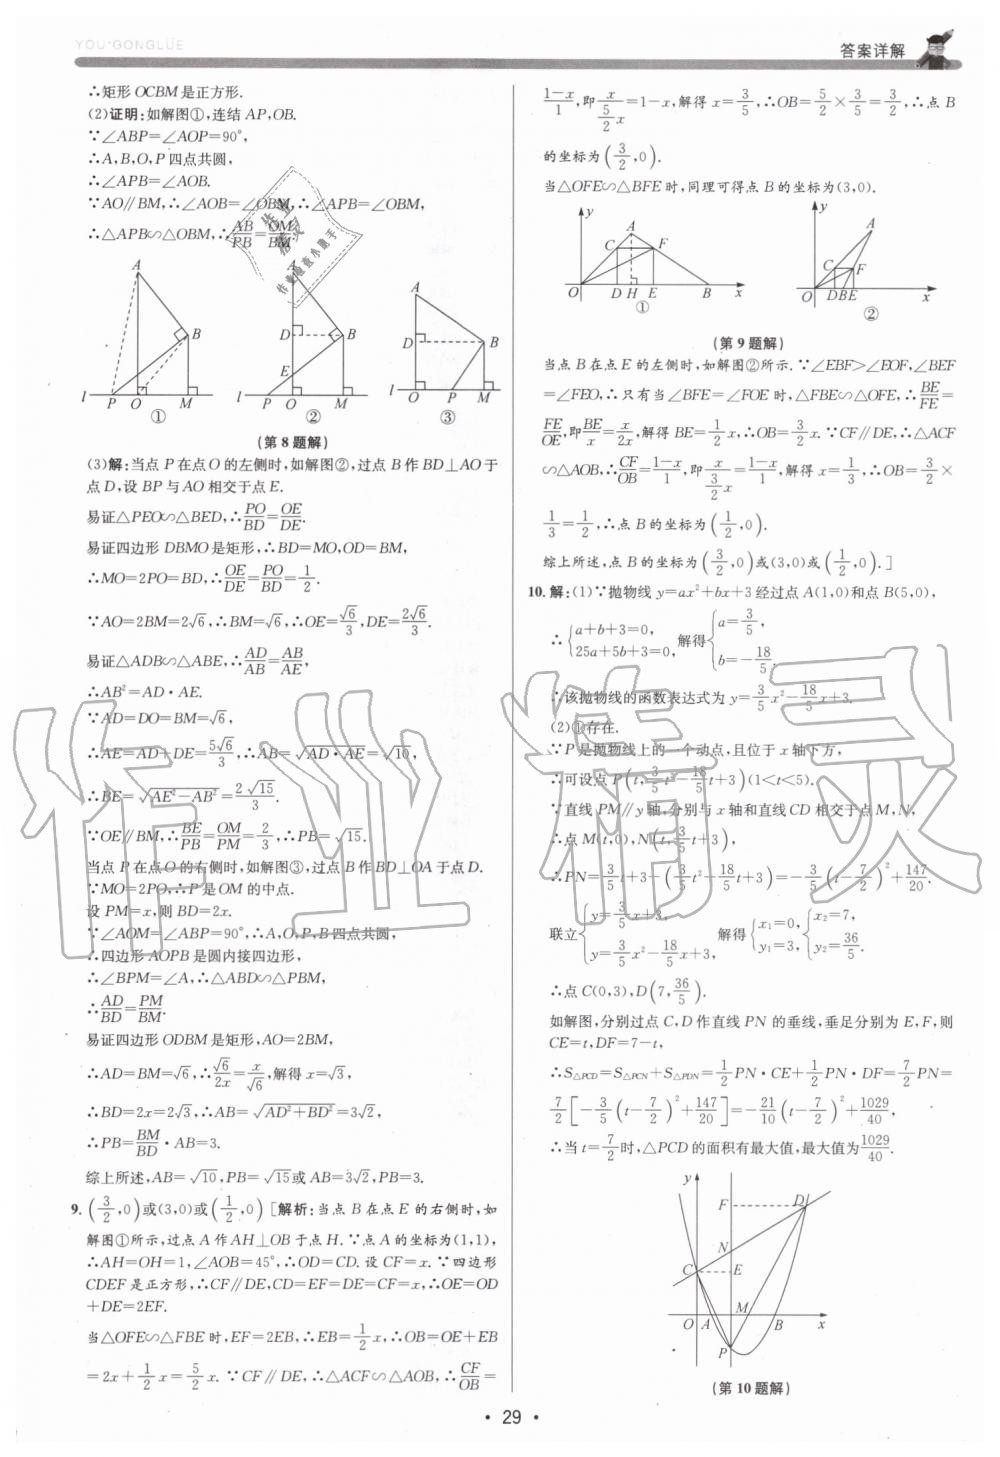 YOU·GONGLÜE
答案详解
∴矩形OCBM是正方形.
(2)证明:如解图①,连结AP,OB.
∵∠ABP=∠AOP=90°,
∴A,B,O,P四点共圆,
∴∠APB=∠AOB.
∵AO∥BM,∴∠AOB=∠OBM,∴∠APB=∠OBM,
∴△APB∽△OBM,∴AB/PB=OM/BM.
A B l P O M ①
A D B E l P O M ②
A D B l O P M ③
(第8题解)
(3)解:当点P在点O的左侧时,如解图②,过点B作BD⊥AO于
点D,设BP与AO相交于点E.
易证△PEO∽△BED,∴PO/BD=OE/DE.
易证四边形DBMO是矩形,∴BD=MO,OD=BM,
∴MO=2PO=BD,∴OE/DE=PO/BD=1/2.
∵AO=2BM=2√6,∴BM=√6,∴OE=√6/3,DE=2√6/3.
易证△ADB∽△ABE,∴AD/AB=AB/AE,
∴AB²=AD·AE.
∵AD=DO=BM=√6,
∴AE=AD+DE=5√6/3,∴AB=√AD·AE=√10,
∴BE=√AE²-AB²=2√15/3.
∵OE∥BM,∴BE/PB=OM/PM=2/3,∴PB=√15.
当点P在点O的右侧时,如解图③,过点B作BD⊥OA于点D.
∵MO=2PO,∴P是OM的中点.
设PM=x,则BD=2x.
∵∠AOM=∠ABP=90°,∴A,O,P,B四点共圆,
∴四边形AOPB是圆内接四边形,
∴∠BPM=∠A,∴△ABD∽△PBM,
∴AD/BD=PM/BM.
易证四边形ODBM是矩形,AO=2BM,
∴AD=BM=√6,∴√6/2x=x/√6,解得x=√3,
∴BD=2x=2√3,∴AB=√AD²+BD²=3√2,
∴PB=BM/BD·AB=3.
综上所述,AB=√10,PB=√15或AB=3√2,PB=3.
9.(3/2,0)或(3,0)或(1/2,0) [解析:当点B在点E的右侧时,如
解图①所示,过点A作AH⊥OB于点H.∵点A的坐标为(1,1),
∴AH=OH=1,∠AOB=45°,∴OD=CD.设CF=x.∵四边形
CDEF是正方形,∴CF∥DE,CD=EF=DE=CF=x,∴OE=OD
+DE=2EF.
当△OFE∽△FBE时,EF=2EB,∴EB=1/2x,∴OB=OE+EB
=2x+1/2x=5/2x.∵CF∥DE,∴△ACF∽△AOB,∴CF/OB=
1-x/1,即x/(5/2x)=1-x,解得x=3/5,∴OB=5/2×3/5=3/2,∴点B
的坐标为(3/2,0).
当△OFE∽△BFE时,同理可得点B的坐标为(3,0).
y A C F O D H E B x ①
y A C F O D B E x ②
(第9题解)
当点B在点E的左侧时,如解图②所示.∵∠EBF>∠EOF,∠BEF
=∠FEO,∴只有当∠BFE=∠FOE时,△FBE∽△OFE,∴BE/FE=
FE/OE,即BE/x=x/2x,解得BE=1/2x,∴OB=3/2x.∵CF∥DE,∴△ACF
∽△AOB,∴CF/OB=1-x/1,即x/(3/2x)=1-x/1,解得x=1/3,∴OB=3/2×
1/3=1/2,∴点B的坐标为(1/2,0).
综上所述,点B的坐标为(3/2,0)或(3,0)或(1/2,0).]
10.解:(1)∵抛物线y=ax²+bx+3经过点A(1,0)和点B(5,0),
∴{a+b+3=0, 25a+5b+3=0, 解得{a=3/5, b=-18/5.
∴该抛物线的函数表达式为y=3/5x²-18/5x+3.
(2)①存在.
∵P是抛物线上的一个动点,且位于x轴下方,
∴可设点P(t,3/5t²-18/5t+3)(1<t<5).
∵直线PM∥y轴,分别与x轴和直线CD相交于点M,N,
∴点M(t,0),N(t,3/5t+3),
∴PN=3/5t+3-(3/5t²-18/5t+3)=-3/5(t-7/2)²+147/20.
联立{y=3/5x+3, y=3/5x²-18/5x+3, 解得{x₁=0, y₁=3, {x₂=7, y₂=36/5.
∴点C(0,3),D(7,36/5).
如解图,分别过点C,D作直线PN的垂线,垂足分别为E,F,则
CE=t,DF=7-t,
∴S△PCD=S△PCN+S△PDN=1/2PN·CE+1/2PN·DF=7/2PN=
7/2[-3/5(t-7/2)²+147/20]=-21/10(t-7/2)²+1029/40,
∴当t=7/2时,△PCD的面积有最大值,最大值为1029/40.
y F D N C E O A M B x P
(第10题解)
· 29 ·
作业精灵